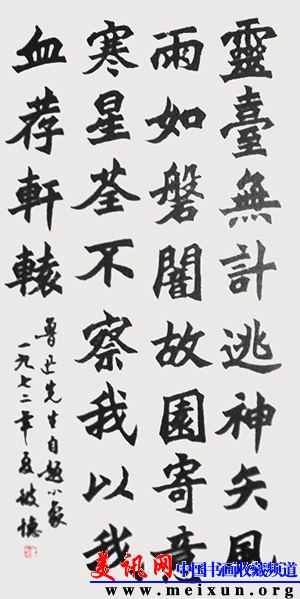 靈臺無計逃神矢風
雨如磐闇故園寄意
寒星荃不察我以我
血荐軒轅
魯迅先生自題小象
一九七二年夏
美讯网 中国书画收藏频道
www.meixun.org